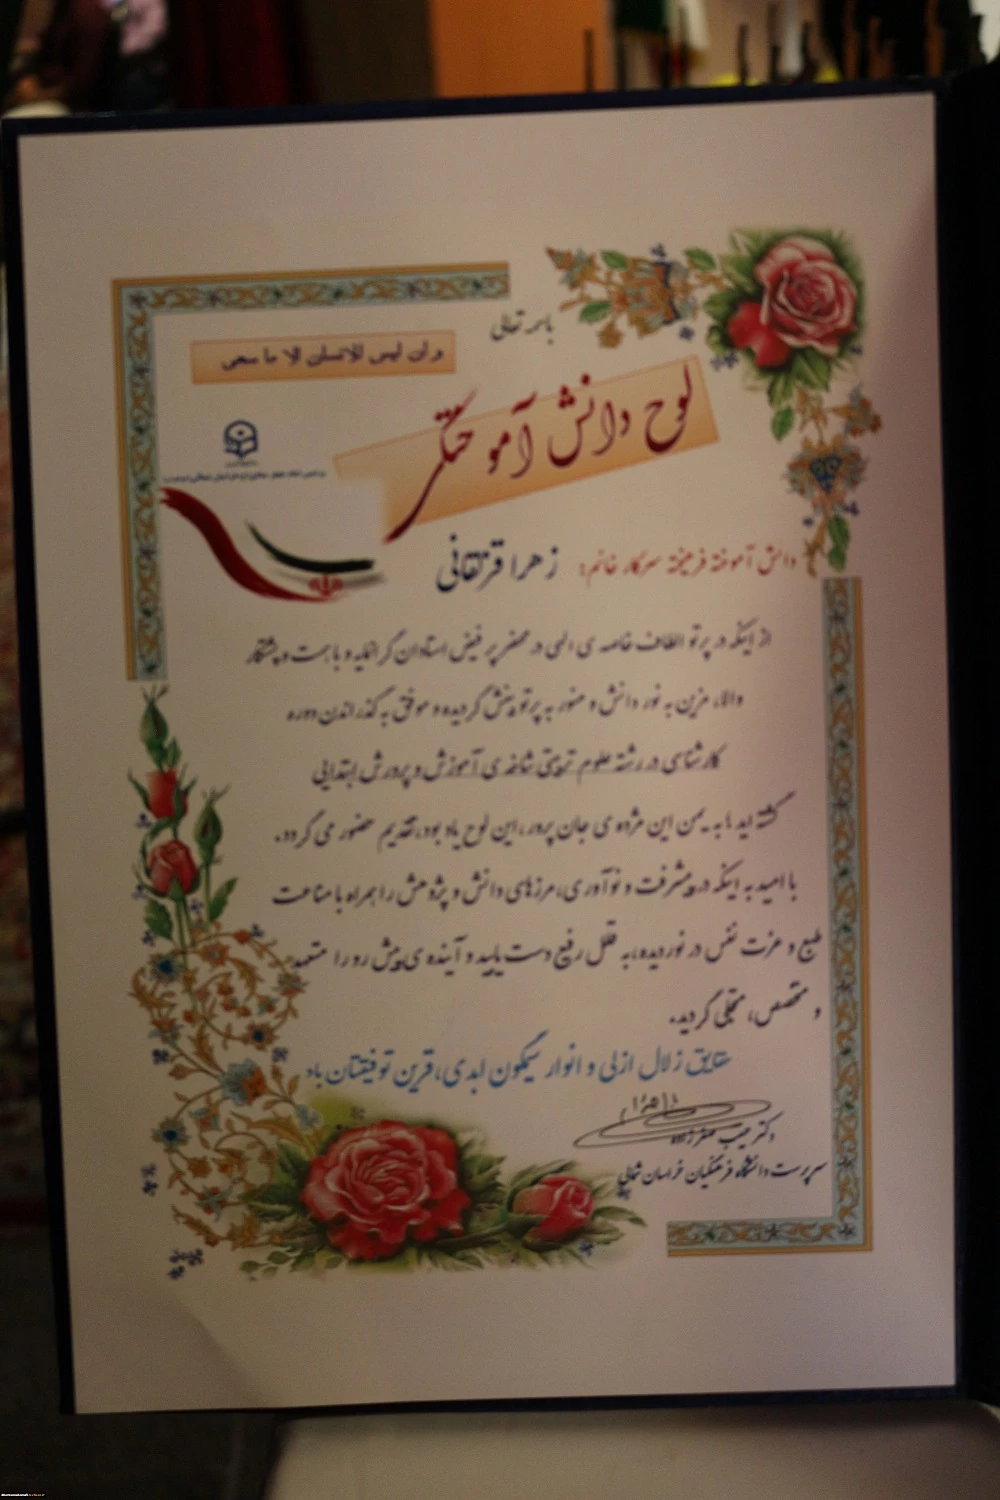 باسمه تعالی
و أن لیس للانسان الا ما سعی
لوح دانش آموختگی
دانش آموخته فرهیخته سرکار خانم: زهرا قرنقانی
از اینکه در پرتو الطاف خاصه ی الهی در محضر پر فیض استادان گرانمایه و با همت و پشتکار
والا، مزین به نور دانش و منور به پرتو بینش گردیده و موفق به گذراندن دوره
کارشناسی در رشته علوم تربیتی شاخه ی آموزش و پرورش ابتدایی
گشته اید به یمن این مژده ی جان پرور، این لوح یاد بود، تقدیم حضور می گردد.
با امید به اینکه در پیشرفت و نوآوری، مرزهای دانش و پژوهش را همراه با مناعت
طبع و عزت نفس در نوردیده، به قلل رفیع دست یابید و آینده ی پیش رو را متعهد
و متخصص، متجلی گردید.
حقایق زلال ازلی و انوار نیلگون ابدی، قرین توفیقتان باد
دکتر حبیب صفرزاده
سرپرست دانشگاه فرهنگیان خراسان شمالی